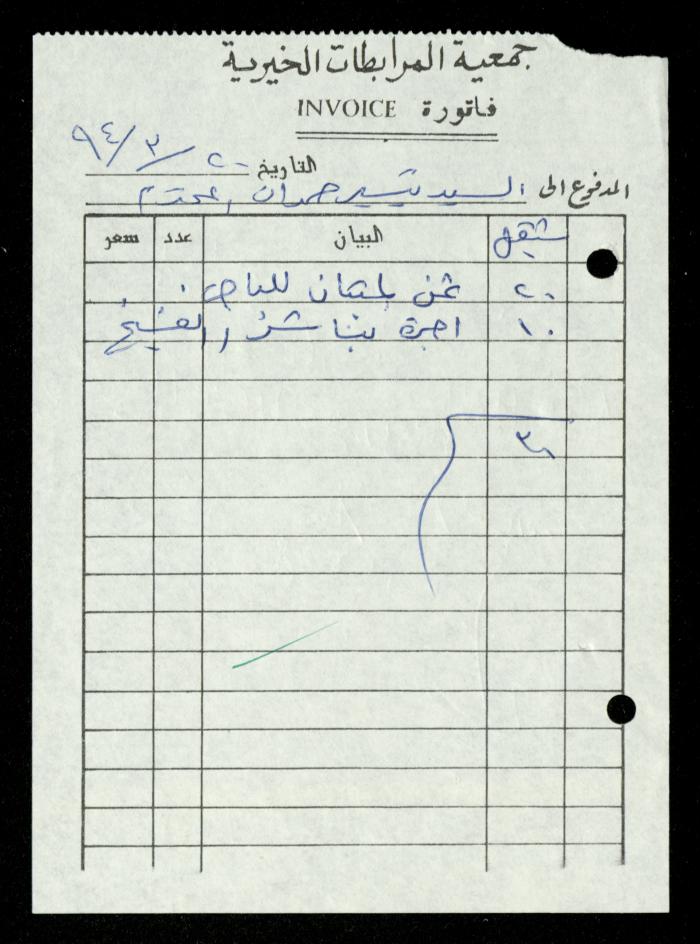 جمعية المرابطات الخيرية
فاتورة INVOICE
التاريخ ٢٠/٣/٩٤
المدفوع الى السيد تيسير حمدان المحترم
شيقل البيان عدد سعر
٢٠ ثمن بلتان للباص
١٠ اجرة بناشر
٣٠